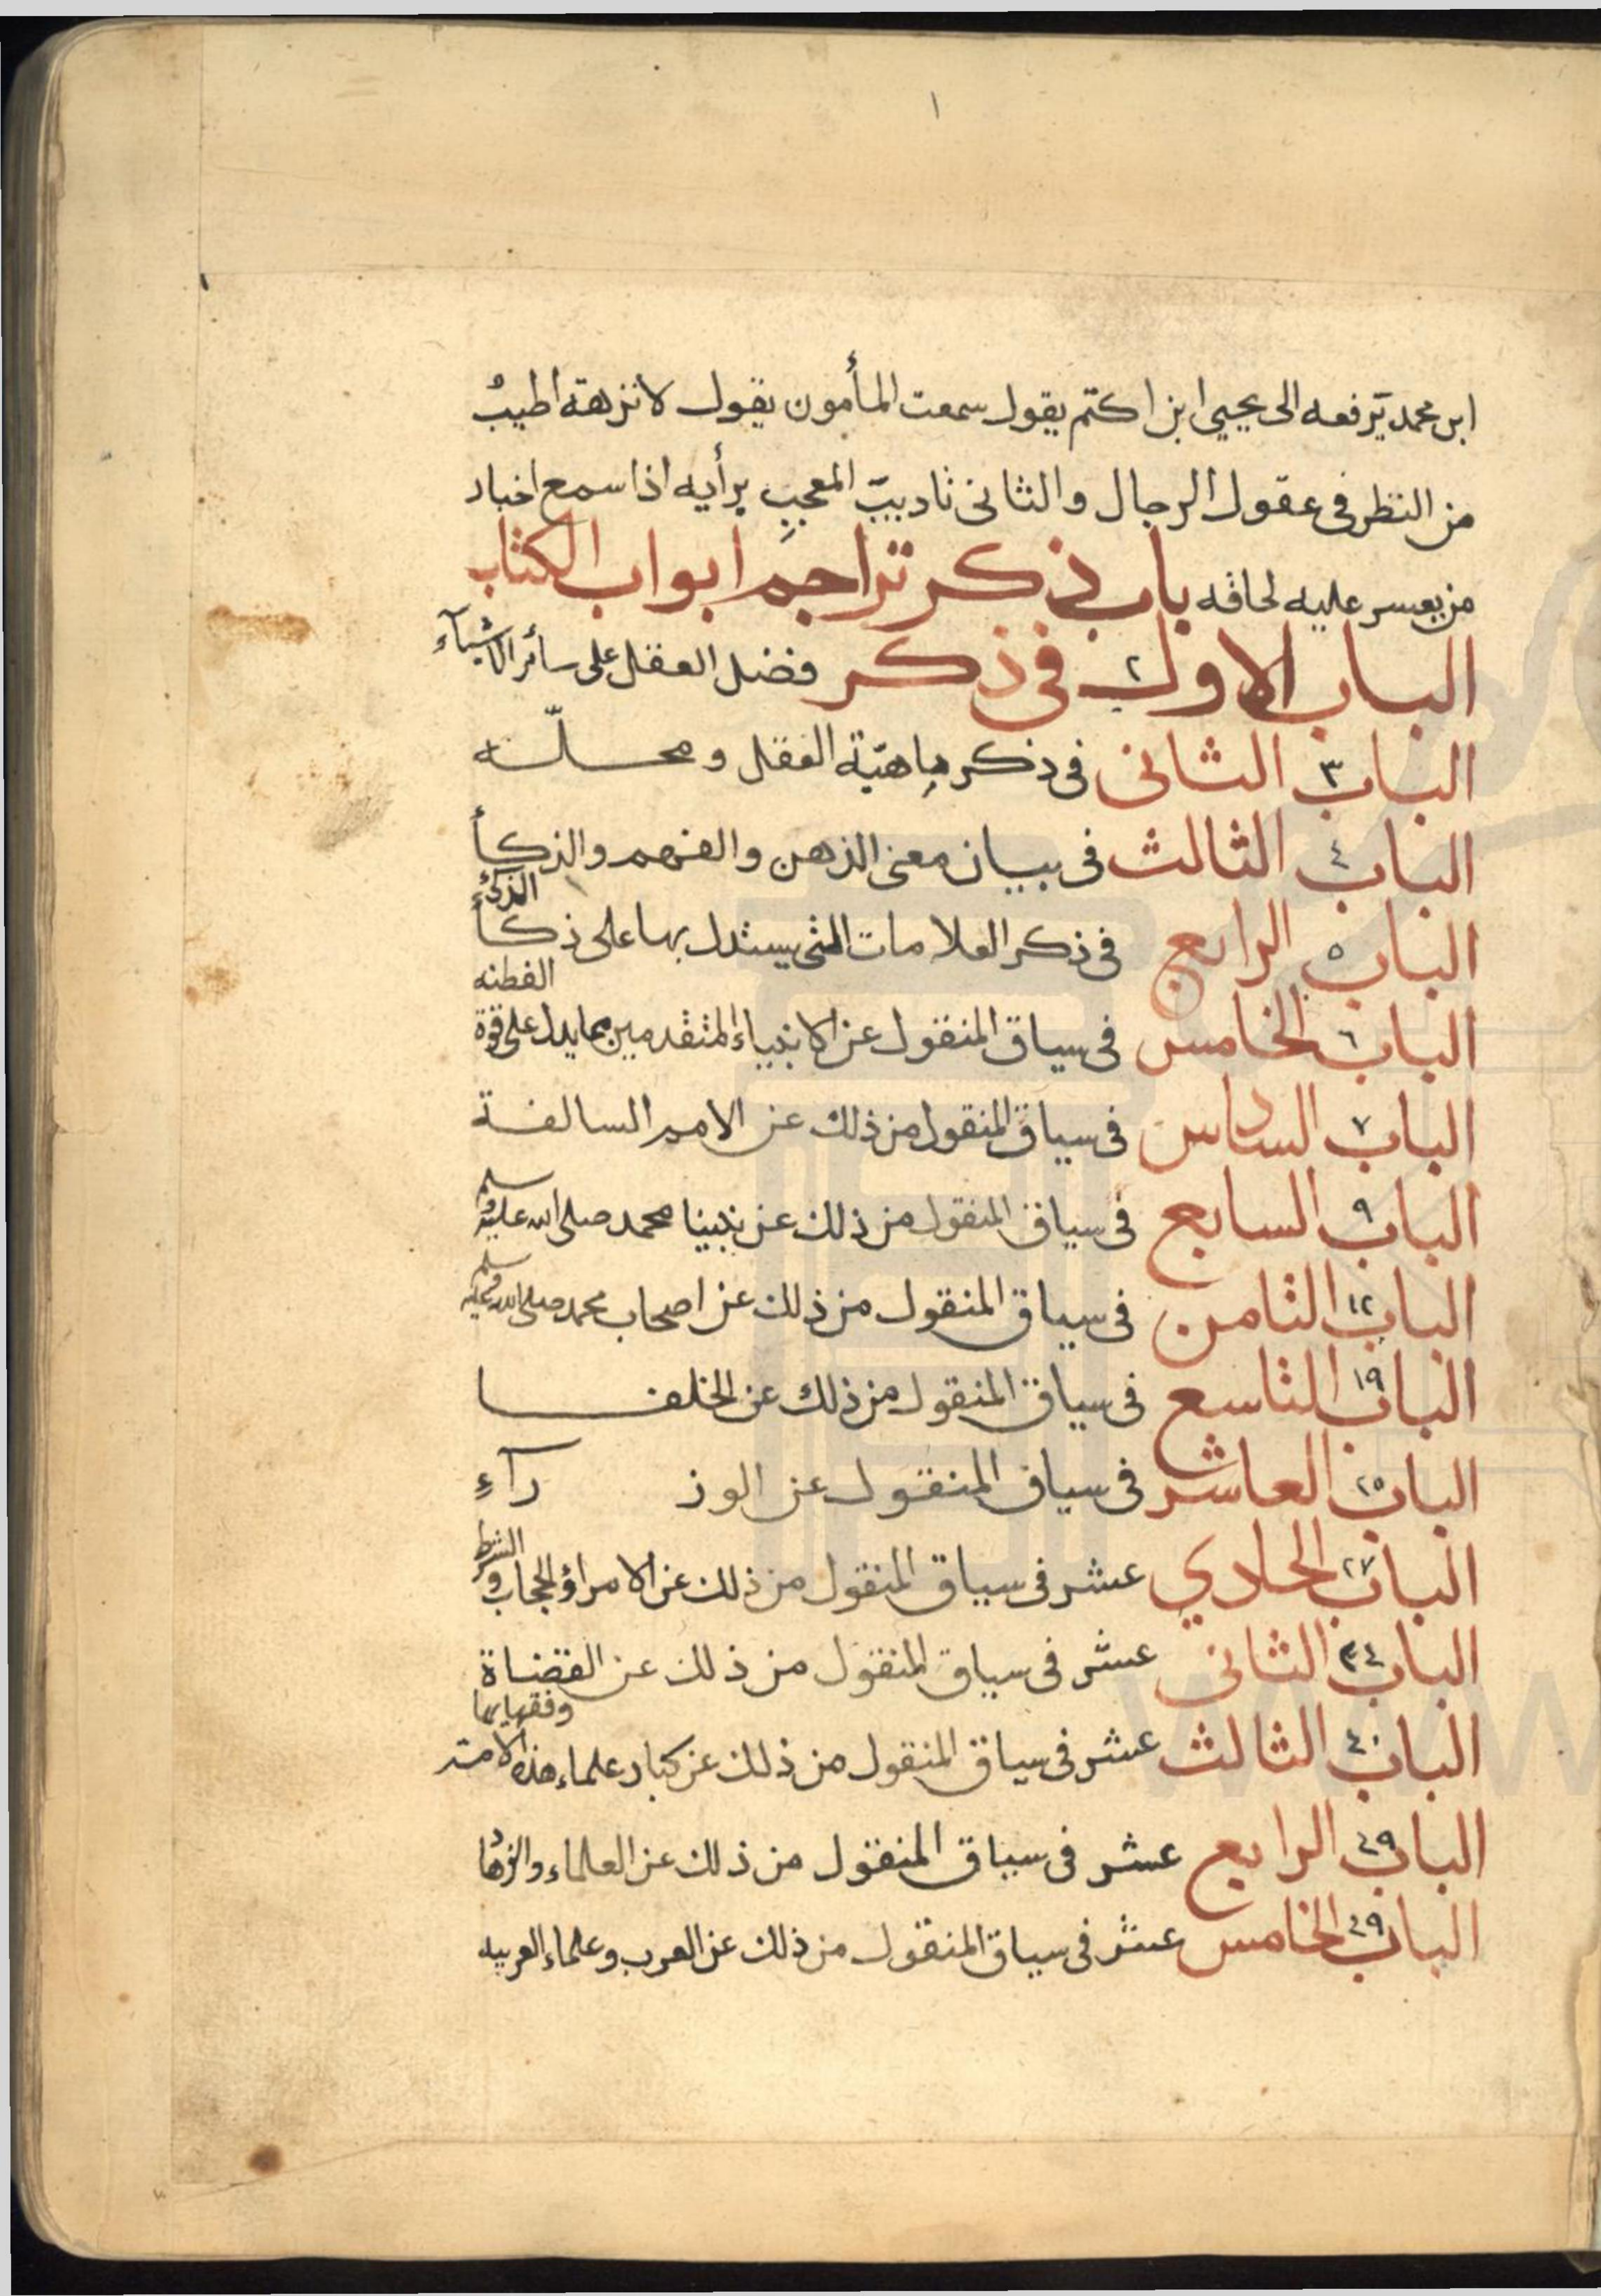 ١
ابن محمد يرفعه الى يحيى ابن اكتم يقول سمعت المأمون يقول لا نزهة اطيب
من النظر فى عقول الرجال والثانى تاديب المعجب برأيه اذا سمع اخبار
من يعسر عليه لحاقه باب ذكر تراجم ابواب الكتاب
الباب الاول ٢ فى ذكر فضل العقل على سائر الاشيآء
الباب ٣ الثانى فى ذكر ماهيّة العقل ومحلّه
الباب ٤ الثالث فى بيان معنى الذهن والفهم والذكأ
الباب ٥ الرابع فى ذكر العلامات التى يستدل بها على ذكأ الذكىء
الباب ٦ الخامس فى سياق المنقول عن الانبياء المتقدمين مما يدل على قوة الفطنه
الباب ٧ السادس فى سياق المنقول من ذلك عن الامم السالفة
الباب ٩ السابع فى سياق المنقول من ذلك عن نبينا محمد صلى الله عليه وسلم
الباب ١٢ الثامن فى سياق المنقول من ذلك عن اصحاب محمد صلى الله عليه وسلم
الباب ١٩ التاسع فى سياق المنقول من ذلك عن الخلفا
الباب ٢٥ العاشر فى سياق المنقول عن الوزرآء
الباب ٢٧ الحادي عشر فى سياق المنقول من ذلك عن الامراؤ الحجاب والشرط
الباب ٣٤ الثانى عشر فى سياق المنقول من ذلك عن القضاة
الباب ٤٠ الثالث عشر فى سياق المنقول من ذلك عن كبار علماء هذه الامة وفقهايها
الباب ٤٩ الرابع عشر فى سياق المنقول من ذلك عن العلماء والزهاد
الباب ٤٩ الخامس عشر فى سياق المنقول من ذلك عن العرب وعلماء العربيه